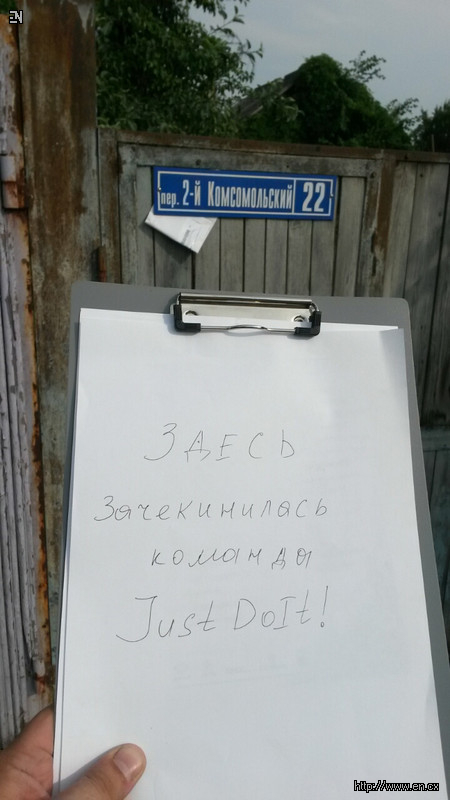 EN
пер. 2-й Комсомольский 22
ЗДЕСЬ
Зачекинилась
команда
Just DoIt!
http://www.en.cx